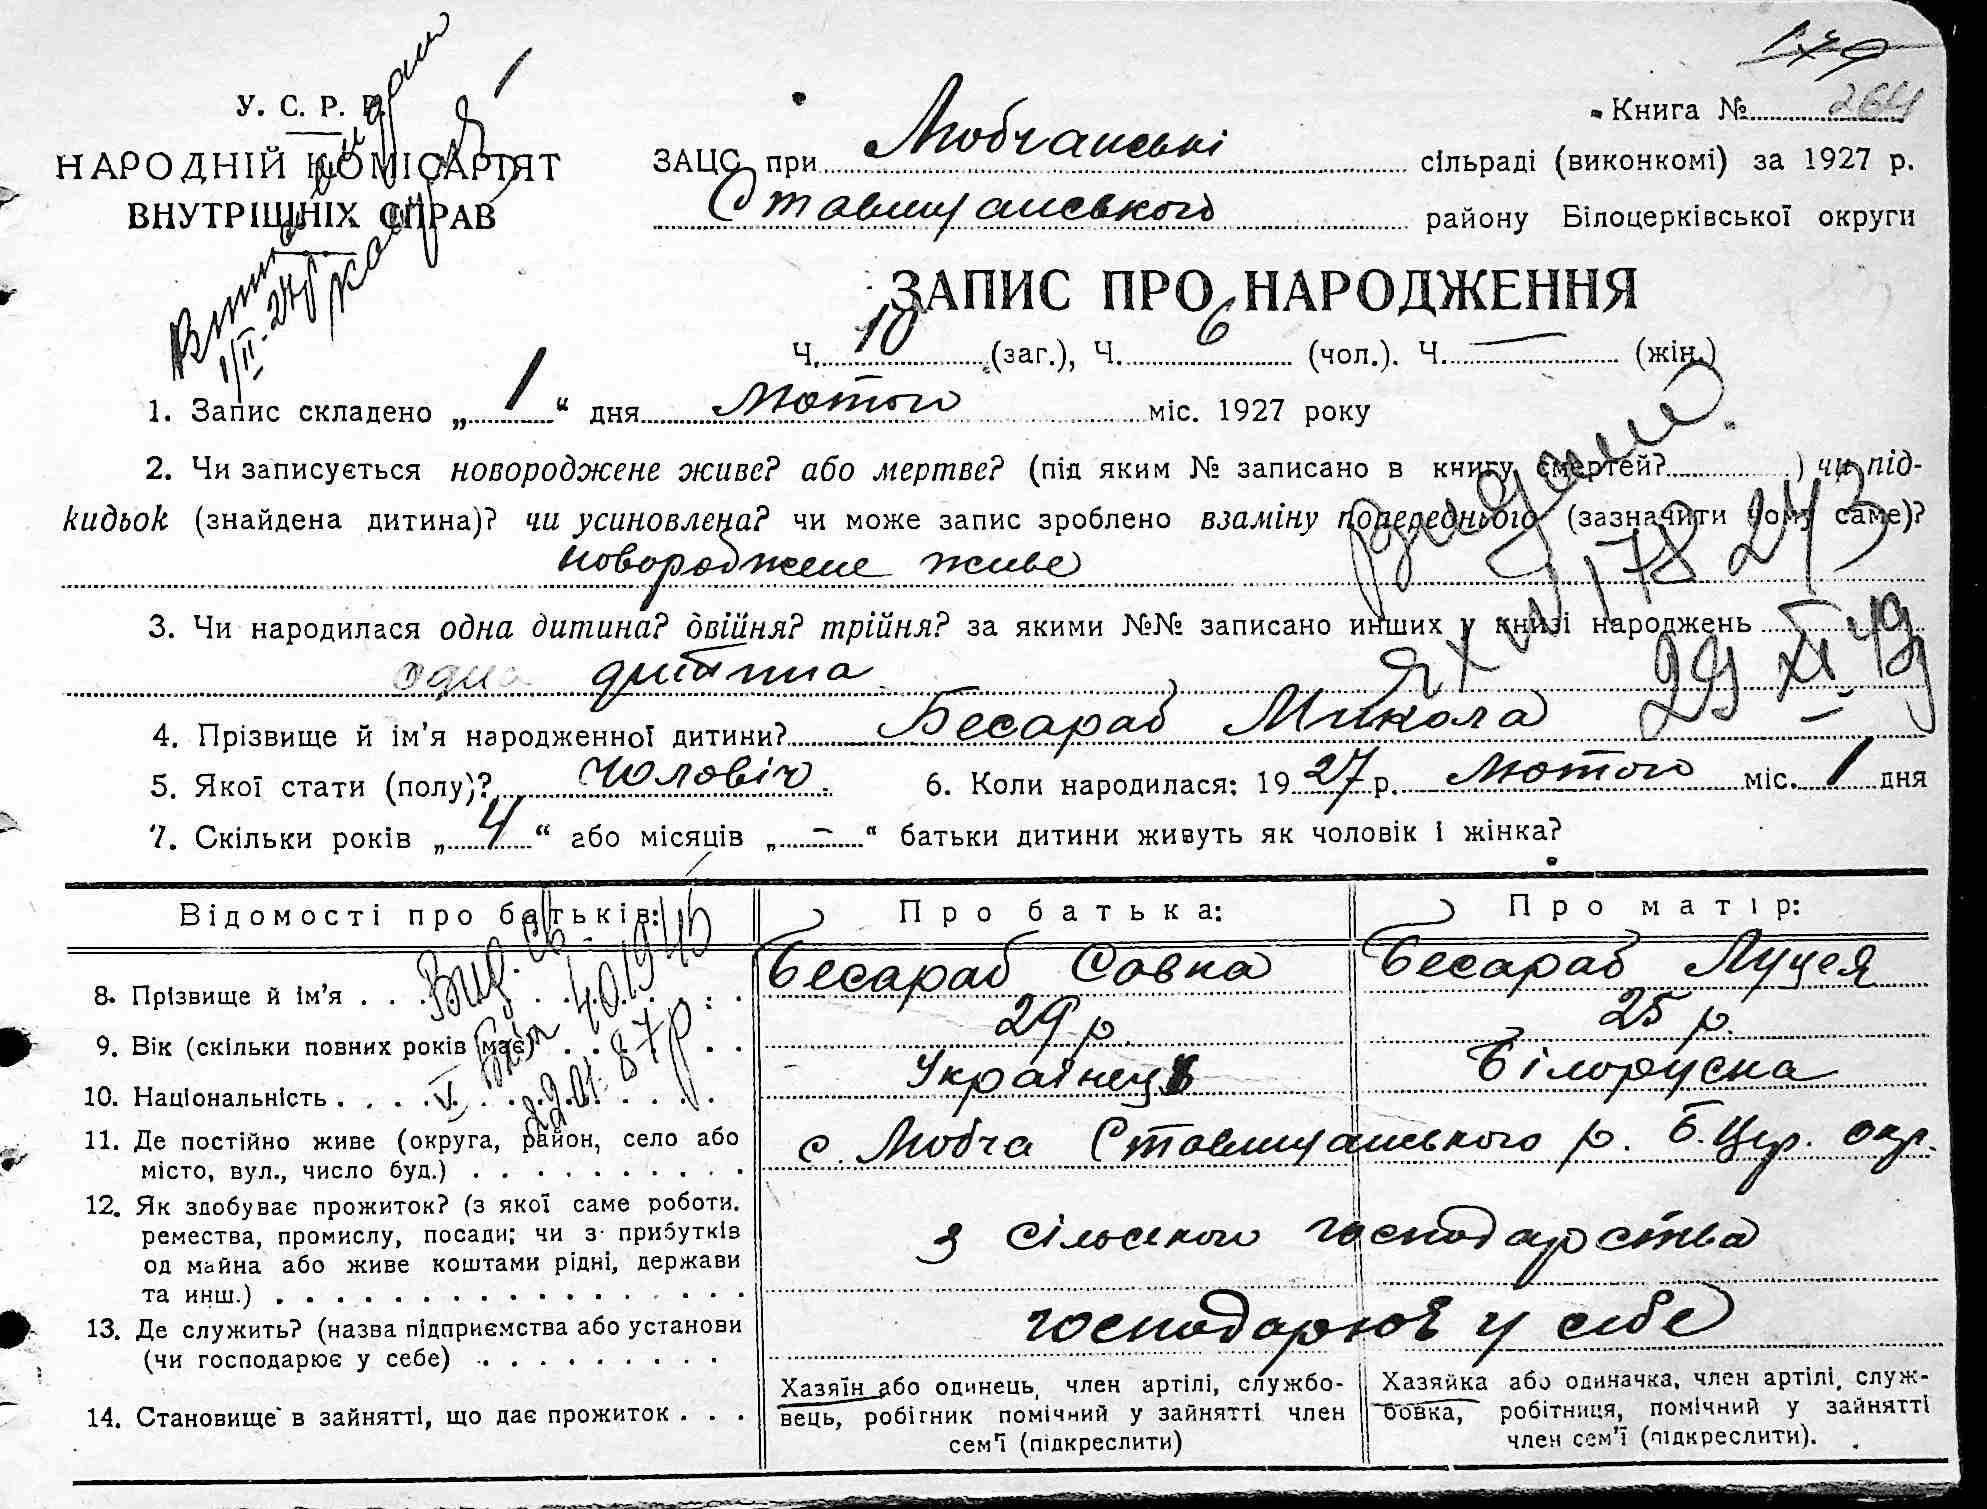 179
264
У. С. Р. Р.
НАРОДНІЙ КОМІСАРІЯТ
ВНУТРІШНІХ СПРАВ
Книга №
ЗАЦС при Любчанські сільраді (виконкомі) за 1927 р.
Ставищанського району Білоцерківської округи
ЗАПИС ПРО НАРОДЖЕННЯ
Ч. 10 (заг.), Ч. 6 (чол.). Ч. — (жін.)
1. Запис складено „ 1 “ дня Лютого міс. 1927 року
2. Чи записується новороджене живе? або мертве? (під яким № записано в книгу смертей? ) чи під-
кидьок (знайдена дитина)? чи усиновлена? чи може запис зроблено взаміну попереднього (зазначити чому саме)?
новороджене живе
3. Чи народилася одна дитина? двійня? трійня? за якими №№ записано инших у книзі народжень
одна дитина
4. Прізвище й ім’я народженної дитини? Бесараб Микола
5. Якої стати (полу)? чоловіч. 6. Коли народилася: 19 27 р. Лютого міс. 1 дня
7. Скільки років „ 4 “ або місяців „ — “ батьки дитини живуть як чоловік і жінка?
Відомості про батьків:
Про батька:
Про матір:
8. Прізвище й ім’я . . .
Бесараб Савка
Бесараб Луцея
9. Вік (скільки повних років має)
29 р.
25 р.
10. Національність . . . .
Українець
Білоруска
11. Де постійно живе (округа, район, село або
місто, вул., число буд.) . . . . . . . . . .
с. Любча Ставищанського р. Б. Цер. окр.
12. Як здобуває прожиток? (з якої саме роботи.
ремества, промислу, посади; чи з прибутків
од майна або живе коштами рідні, держави
та инш.) . . . . . . . . . . . . . . . .
з сільського господарства
13. Де служить? (назва підприємства або установи
(чи господарює у себе) . . . . . . . . .
господарює у себе
14. Становище в зайнятті, що дає прожиток . . .
Хазяїн або одинець, член артілі, службо-
вець, робітник помічний у зайнятті член
сем’ї (підкреслити)
Хазяйка або одиначка, член артілі, служ-
бовка, робітниця, помічний у зайнятті
член сем’ї (підкреслити).
видано
178243
29 XI 49